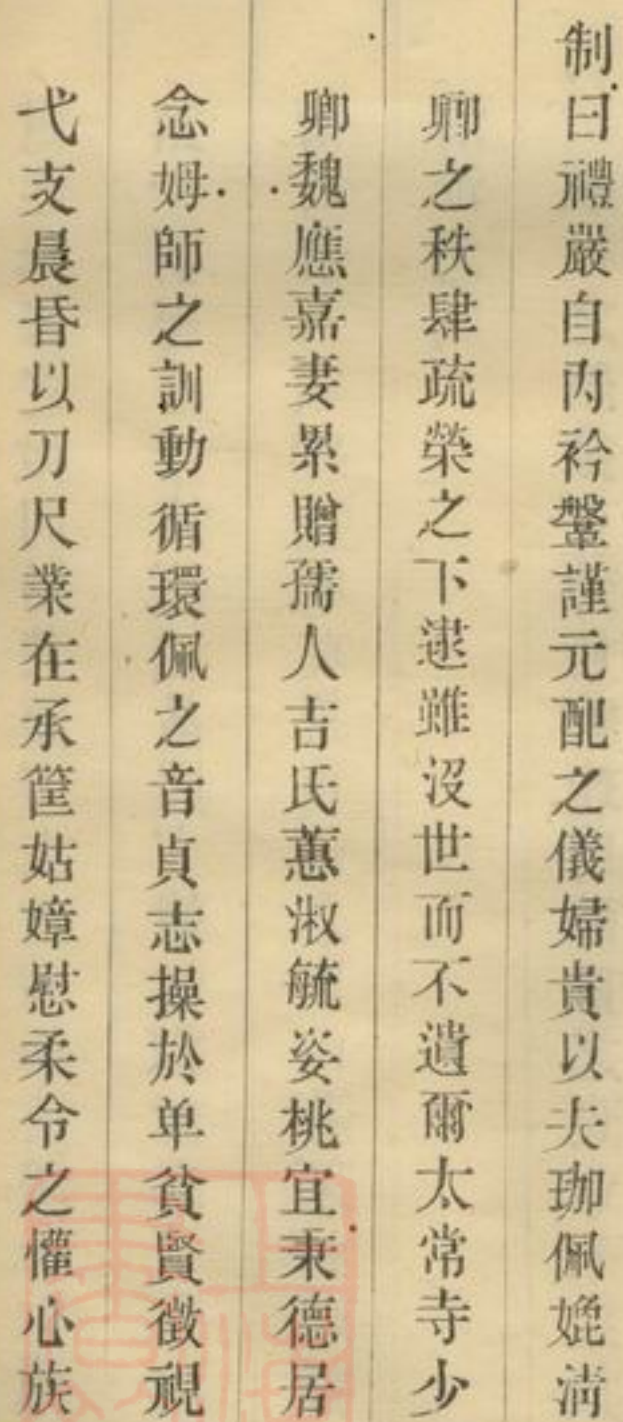 制曰禮嚴自内衿鞶謹元配之儀婦貴以夫珈佩媲淸
卿之秩肆疏榮之下逮雖没世而不遺爾太常寺少
卿魏應嘉妻累贈孺人吉氏蕙淑毓姿桃宜秉德居
念姆師之訓動循環佩之音貞志操於单貧賢徵視
弋支晨昏以刀尺業在承筐姑嫜慰柔令之懽心族